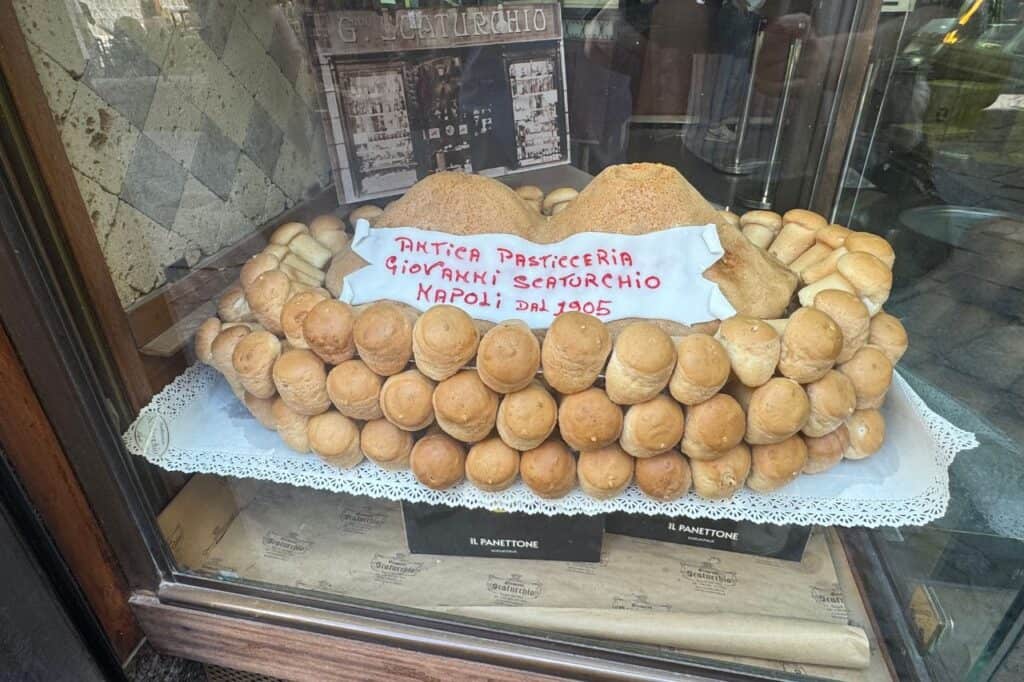 G. SCATURCHIO
ANTICA PASTICCERIA
GIOVANNI SCATURCHIO
NAPOLI DAL 1905
IL PANETTONE
IL PANETTONE
Scaturchio
Scaturchio
Scaturchio
Scaturchio
Scaturchio